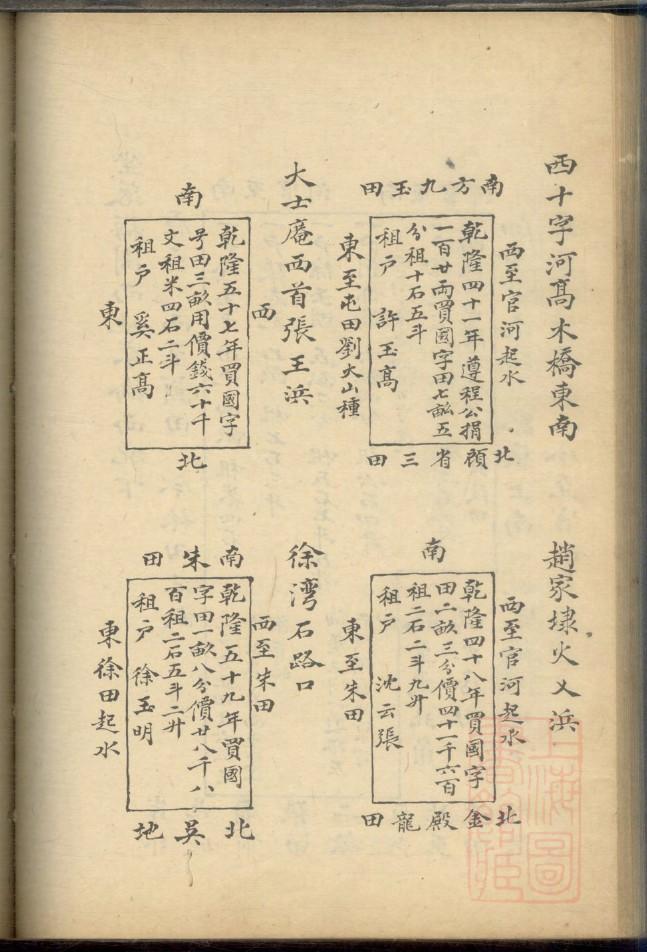 西十字河髙木橋東南
西至官河起水
南方九玉田
乾隆四十一年遵程公捐
一百廿兩買國字田七畝五
分租十石五斗
租户 許玉髙
北顔省三田
東至屯田劉大山種
大士庵西首張王浜
西
南
乾隆五十七年買國字
号田三畝用價錢六十千
文租米四石二斗
租户 奚正髙
北
東
趙家埭火乂浜
西至官河起水
南
乾隆四十八年買國字
田二畝三分價四十一千六百
租二石二斗九升
租户 沈云張
北金殿龍田
東至朱田
徐湾石路口
西至朱田
南朱田
乾隆五十九年買國
字田一畝八分價廿八千八
百租二石五斗二升
租户 徐玉明
北吳地
東徐田起水
上海圖